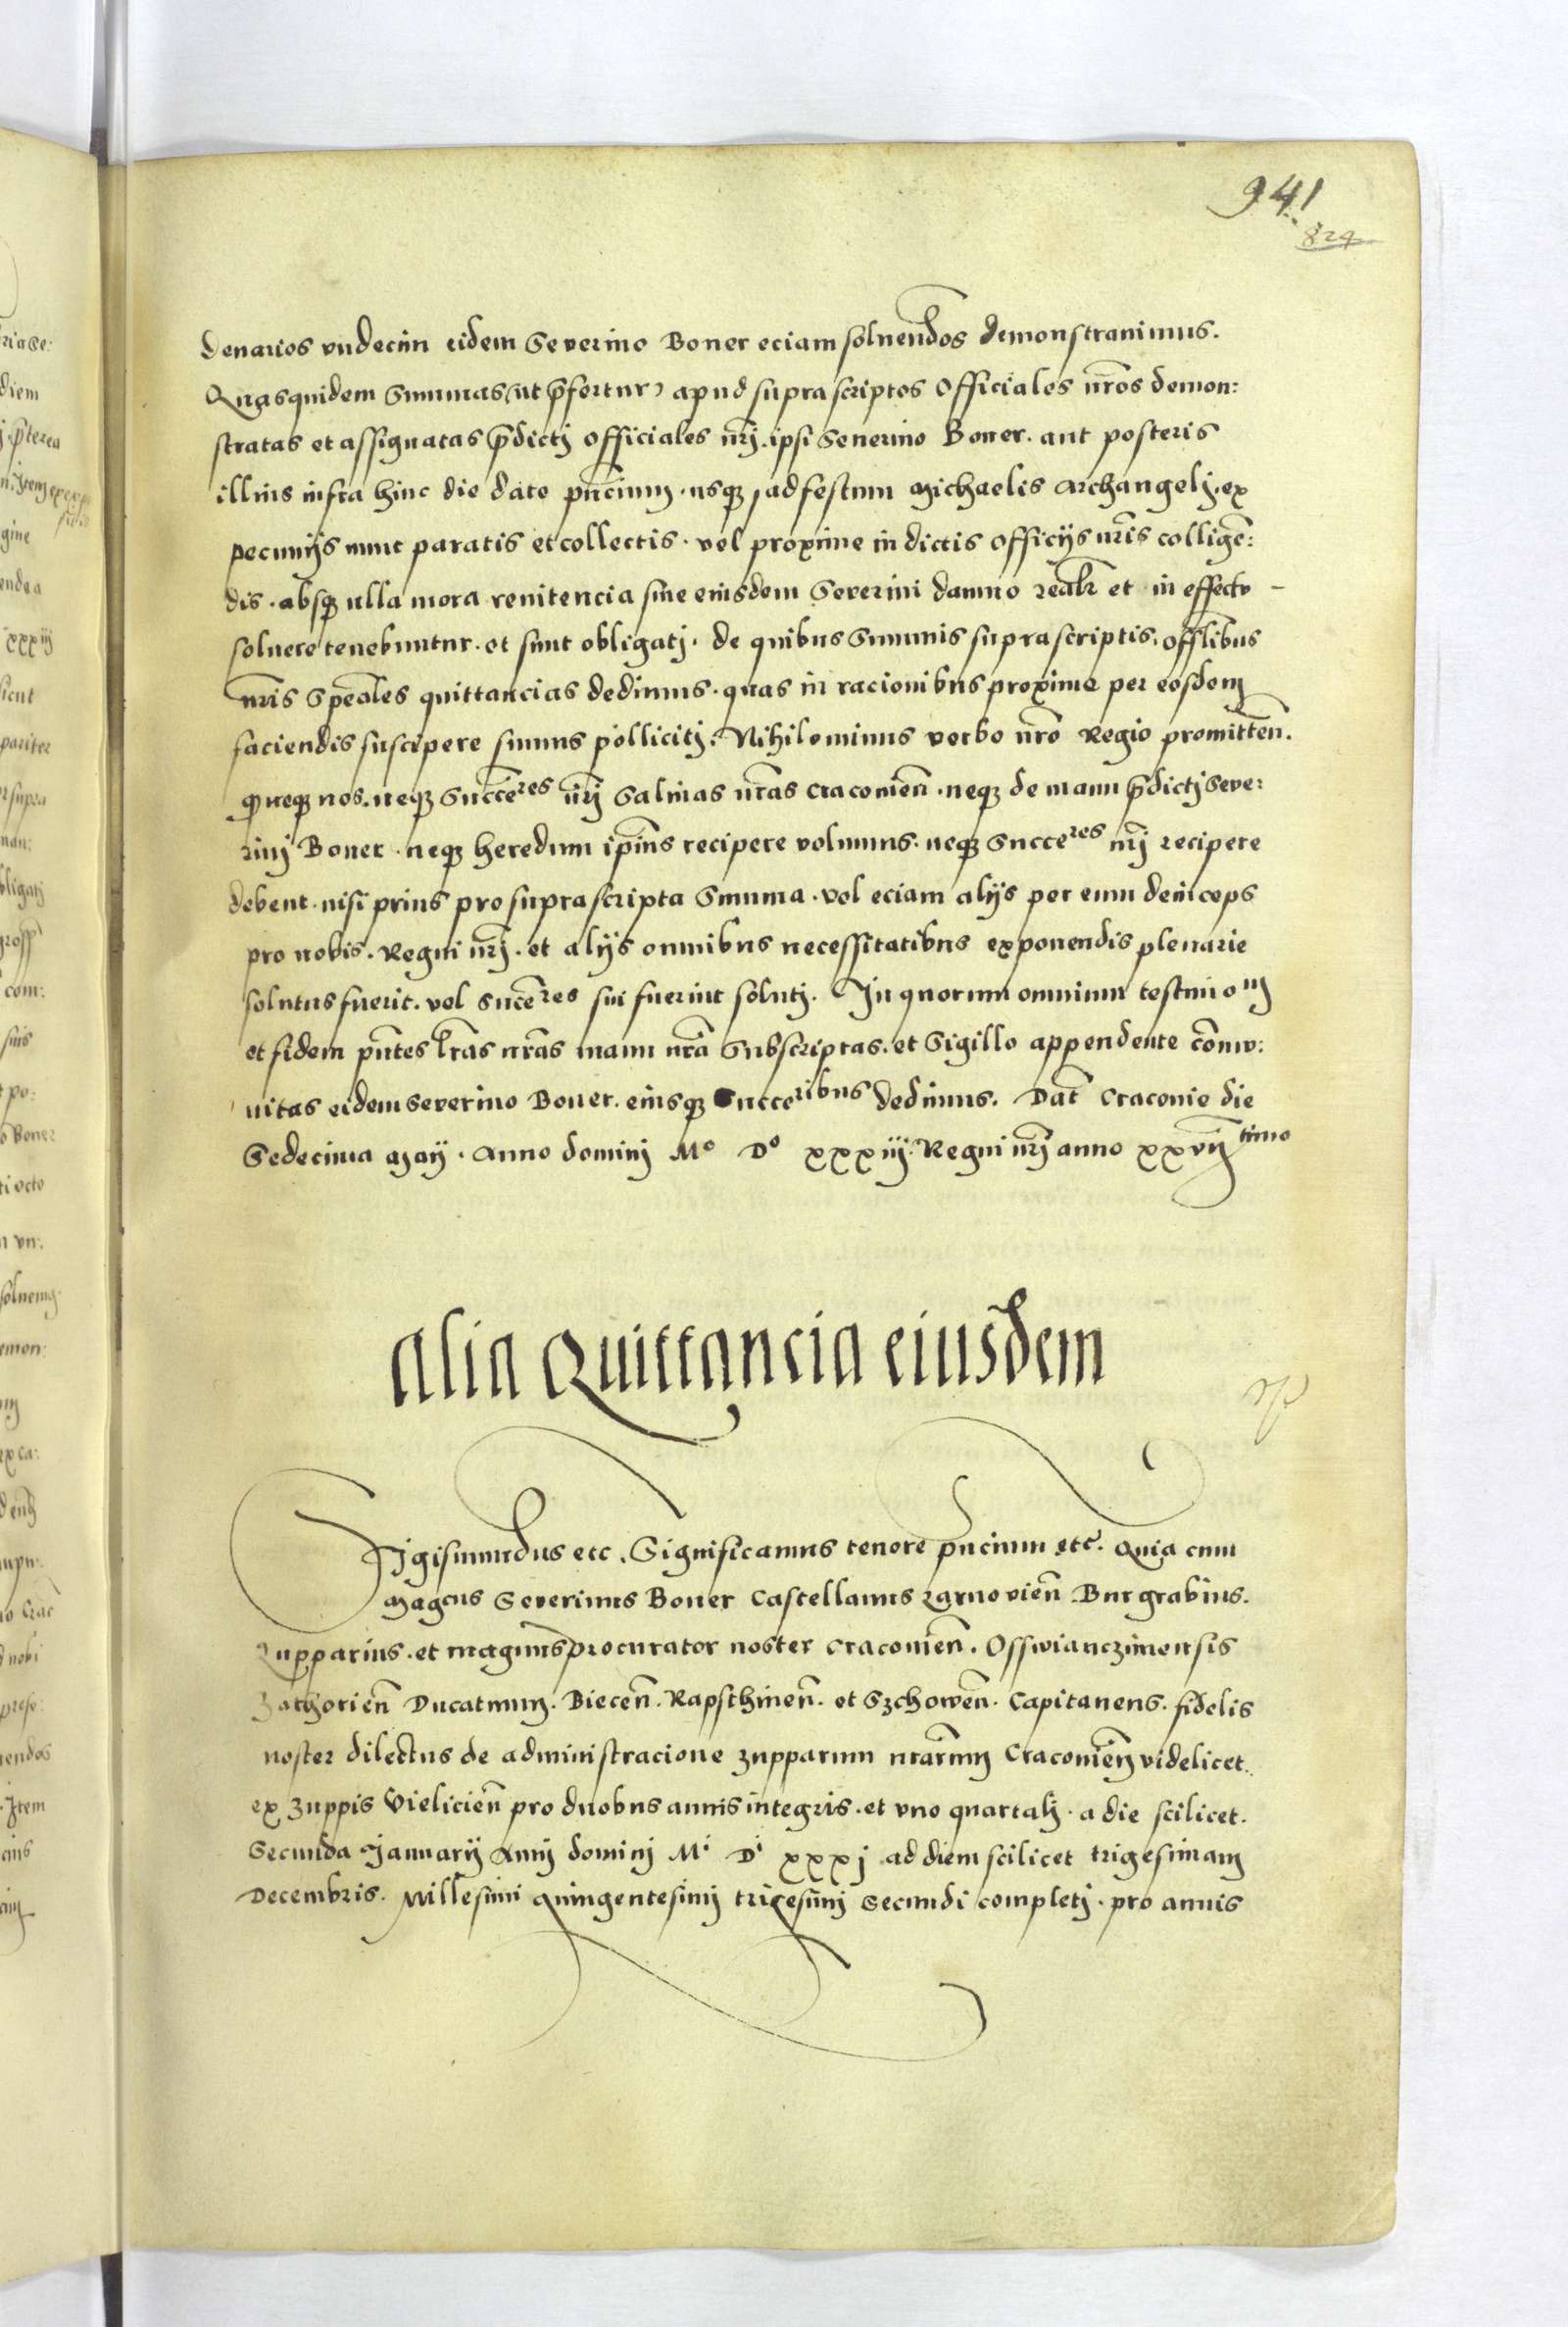 941
824
denarios vndecim eidem Severino Boner eciam soluendos demonstrauimus.
Quasquidem Summas (ut p̄fertur) apud suprascriptos Officiales nr̄os demon:
stratas et assignatas p̄dictj officiales nr̄j. ipsi Seuerino Boner. aut posteris
illius infra hinc die dato pn̄cium. usqꝫ ad festum Michaelis Archangelj. ex
pecunijs nunc paratis et collectis. vel proxime in dictis officijs nr̄is colligēn:
dis. absqꝫ ulla mora renitencia siue eiusdem Severini damno realr̄ et in effectu -
soluere tenebuntur. et sunt obligatj. de quibus Summis suprascriptis. offl̄ibus
nr̄is Spēales quittancias dedimus. quas in racionibus proxime per eosdem
faciendis suscipere sumus pollicitj. Nihilominus verbo nr̄o Regio promitten̄.
ꝙ neqꝫ nos. neqꝫ Succe͞res nr̄j Salinas nr̄as Cracouien̄. neqꝫ de manu p̄dictj Seve:
rinj Boner. neqꝫ heredum ip̄ius recipere volumus. neqꝫ Succeres nr̄j recipere
debent. nisi prius pro suprascripta Summa. vel eciam alijs per eum deinceps
pro nobis. Regni nr̄j. et alijs omnibus necessitatibus exponendis plenarie
solutus fuerit. vel Succeres sui fuerint solutj. In quorum omnium testimonij
et fidem pn̄tes lr̄as nr̄as manu nr̄a Subscriptas. et Sigillo appendente co͞mu:
nitas eidem Severino Boner. eiusqꝫ Succeribus dedimus. Dat̄ Cracouie die
Sedecima Maij. Anno dominj Mo Do xxxiij. Regni nr̄j anno xxvijtimo
Alia Quittancia eiusdem
Sigismundus etc. Significamus tenore pn̄cium etc̄. Quia cum
Magcus Severinus Boner Castellanus Zarnovien̄. Burgrabius.
Zupparius. et magnus procurator noster Cracouien̄. Osswianczimensis
Zathorien̄ Ducatuum. Biecen̄. Rapsthinen̄. et Szchowen̄. Capitaneus. fidelis
noster dilectus de administracione zupparum nr̄arum Cracouien̄ videlicet.
ex zuppis Vielicien̄ pro duobus annis integris. et vno quartalj. a die scilicet.
Secunda Januarij Annj dominj Mi Di xxxj ad diem scilicet trigesimam
Decembris. Millesimi Quingentesimj tricesimj Secundi completj. pro annis